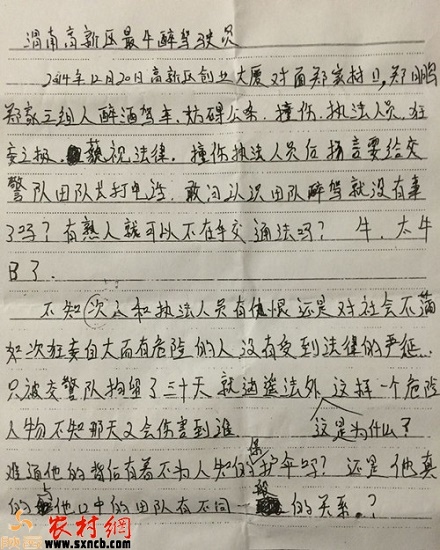 渭南高新区最牛醉驾驶员
2014年12月20日高新区创业大厦对面郑家村口,郑鹏
郑家三组人醉酒驾车.妨碍公务.撞伤.执法人员.狂
妄之极.藐视法律.撞伤执法人员后扬言要给交
警队田队长打电话.敢问认识田队醉驾就没有事
了吗?有熟人就可以不在乎交通法吗?牛.太牛
B了.
不知次人和执法人员有仇恨还是对社会不满
如次狂妄自大而有危险的人没有受到法律的严延.
只被交警队拘留了三十天就逍遥法外这样一个危险
人物不知那天又会伤害到谁 这是为什么?
难道他的背后有着不为人知的保护伞吗?还是他真
的与他口中的田队有不同一般的关系.?
农村網
www.sxncb.com